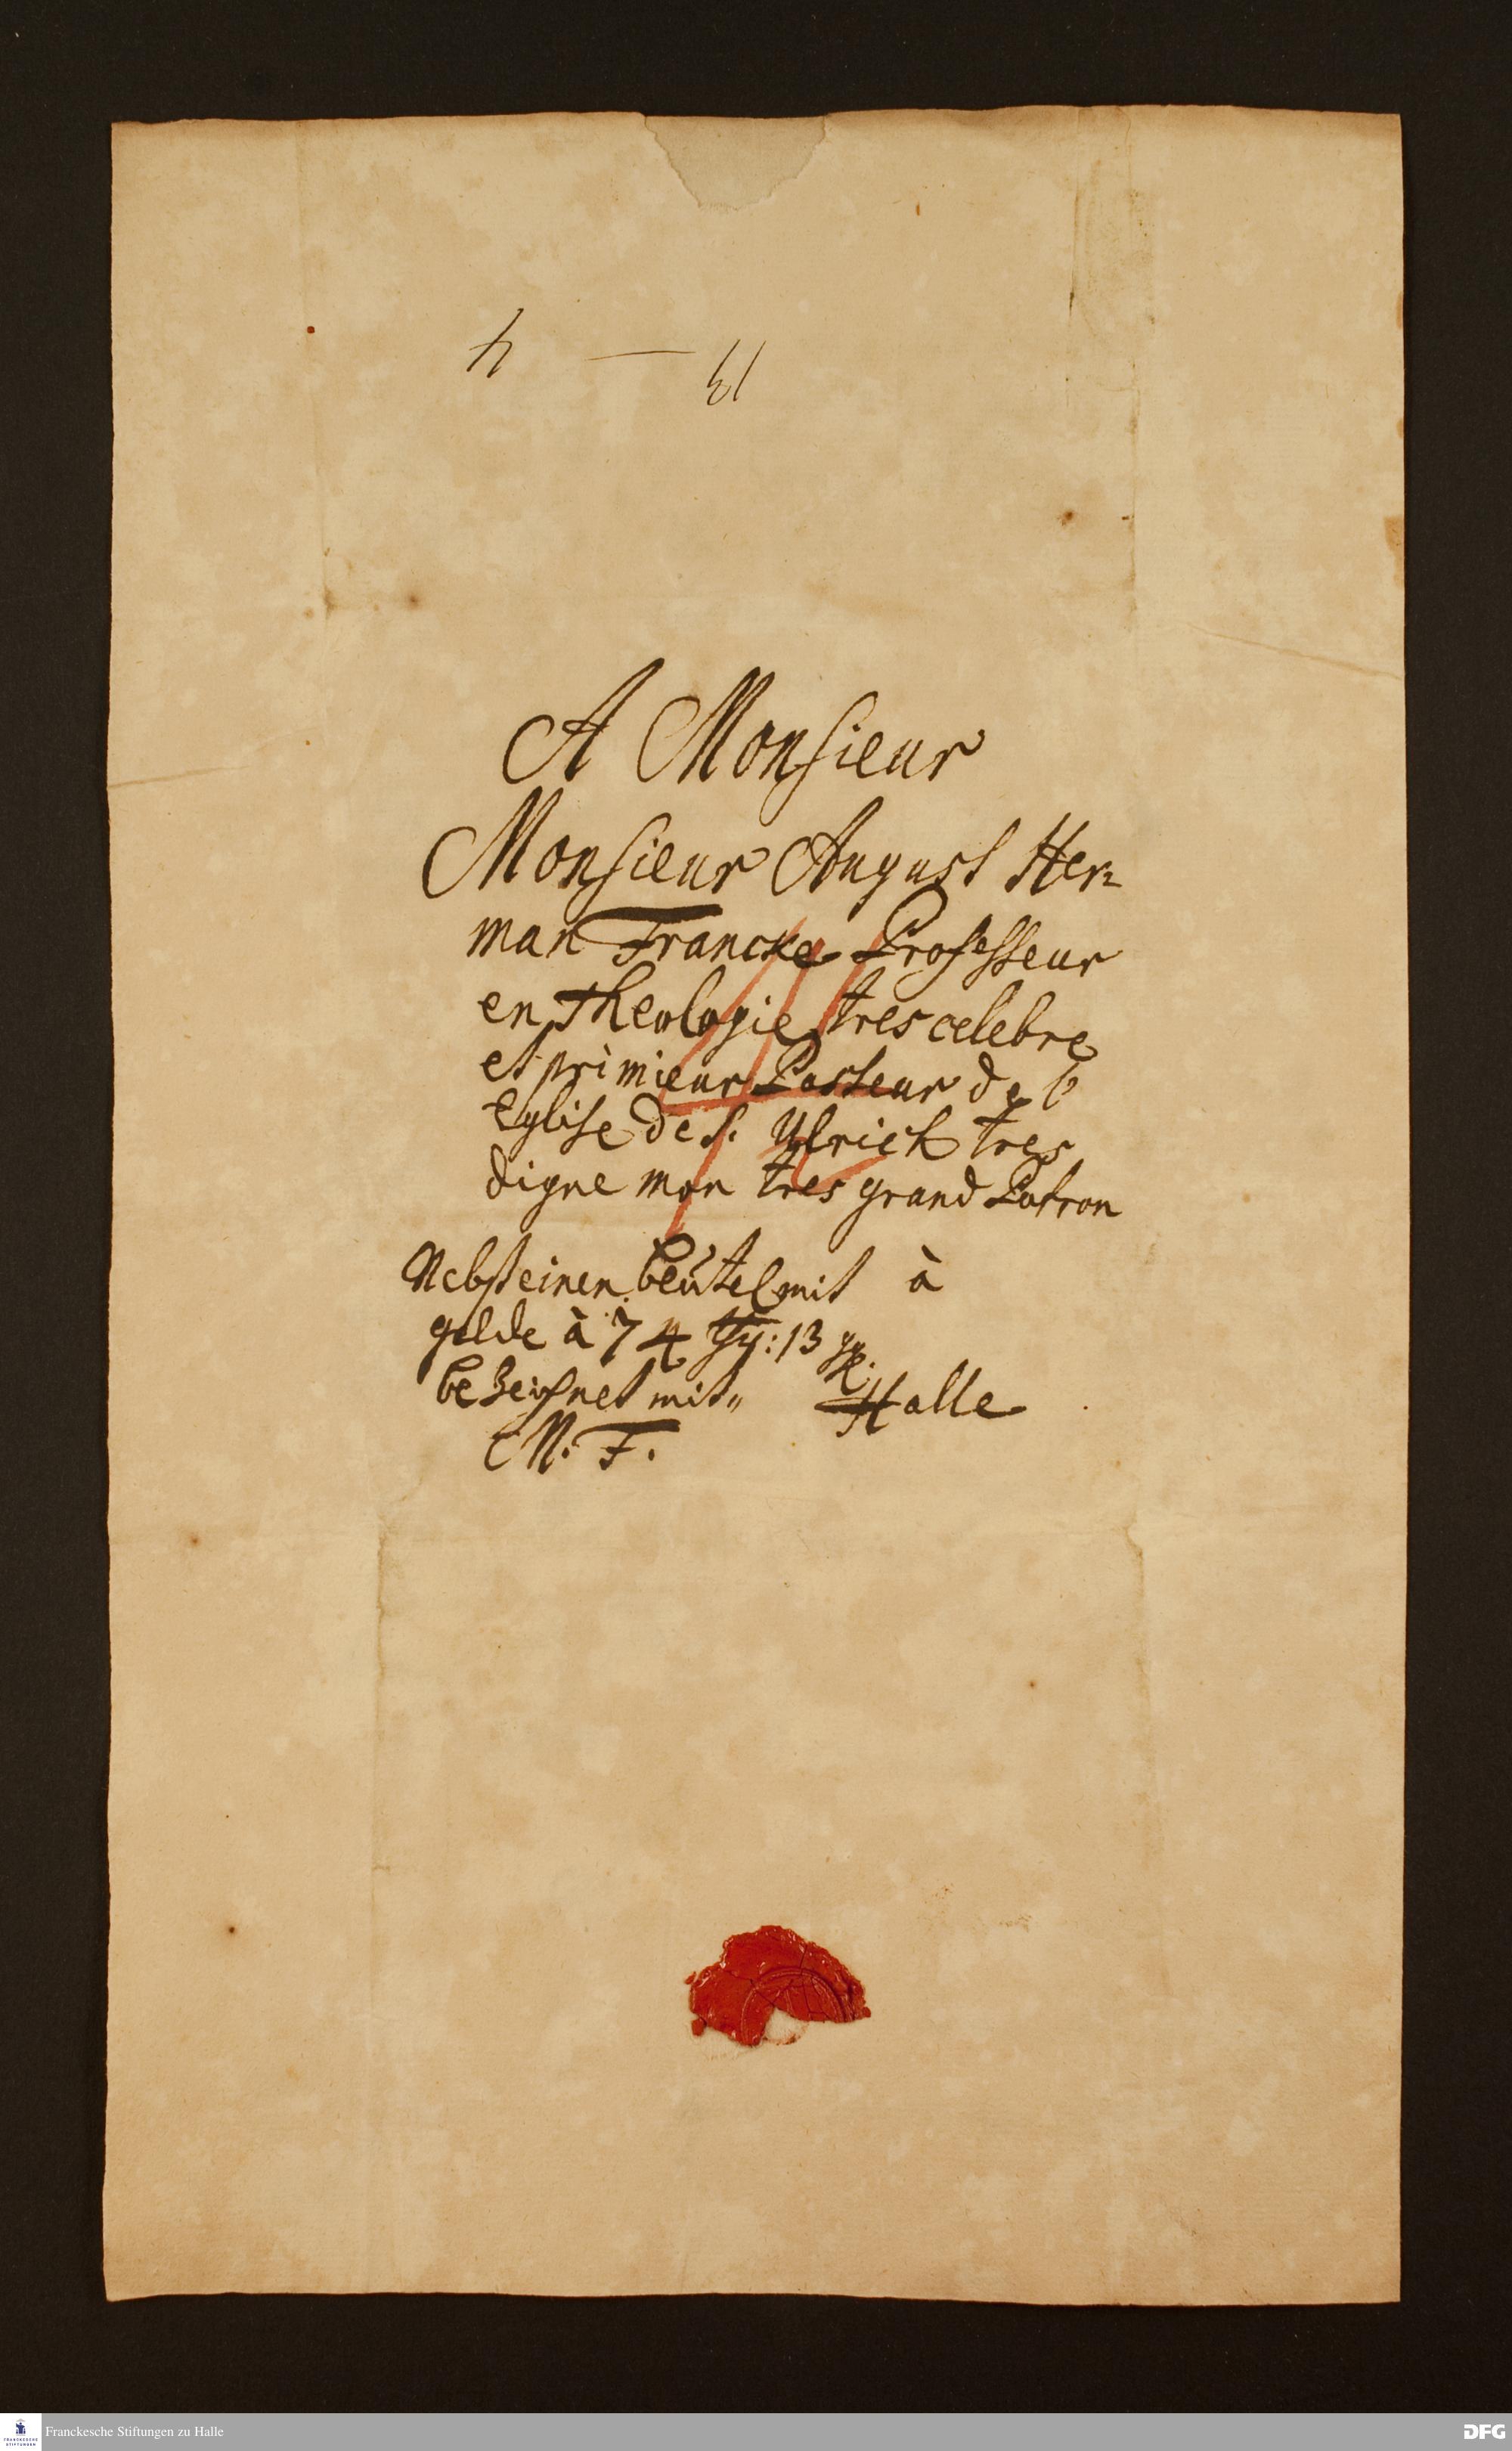 A Monsieur
Monsieur August Her=
man Francke Professeur
en Theologie tres celebre
et primieur Pasteur de l'
Eglise de S. Ulrich tres
digne mon tres grand Patron
Nebst einen beutel mit à
gelde à 74 13 gr
bezeichnet mit
M. F.
Halle
Franckesche Stiftungen zu Halle
FRANCKESCHE STIFTUNGEN
DFG